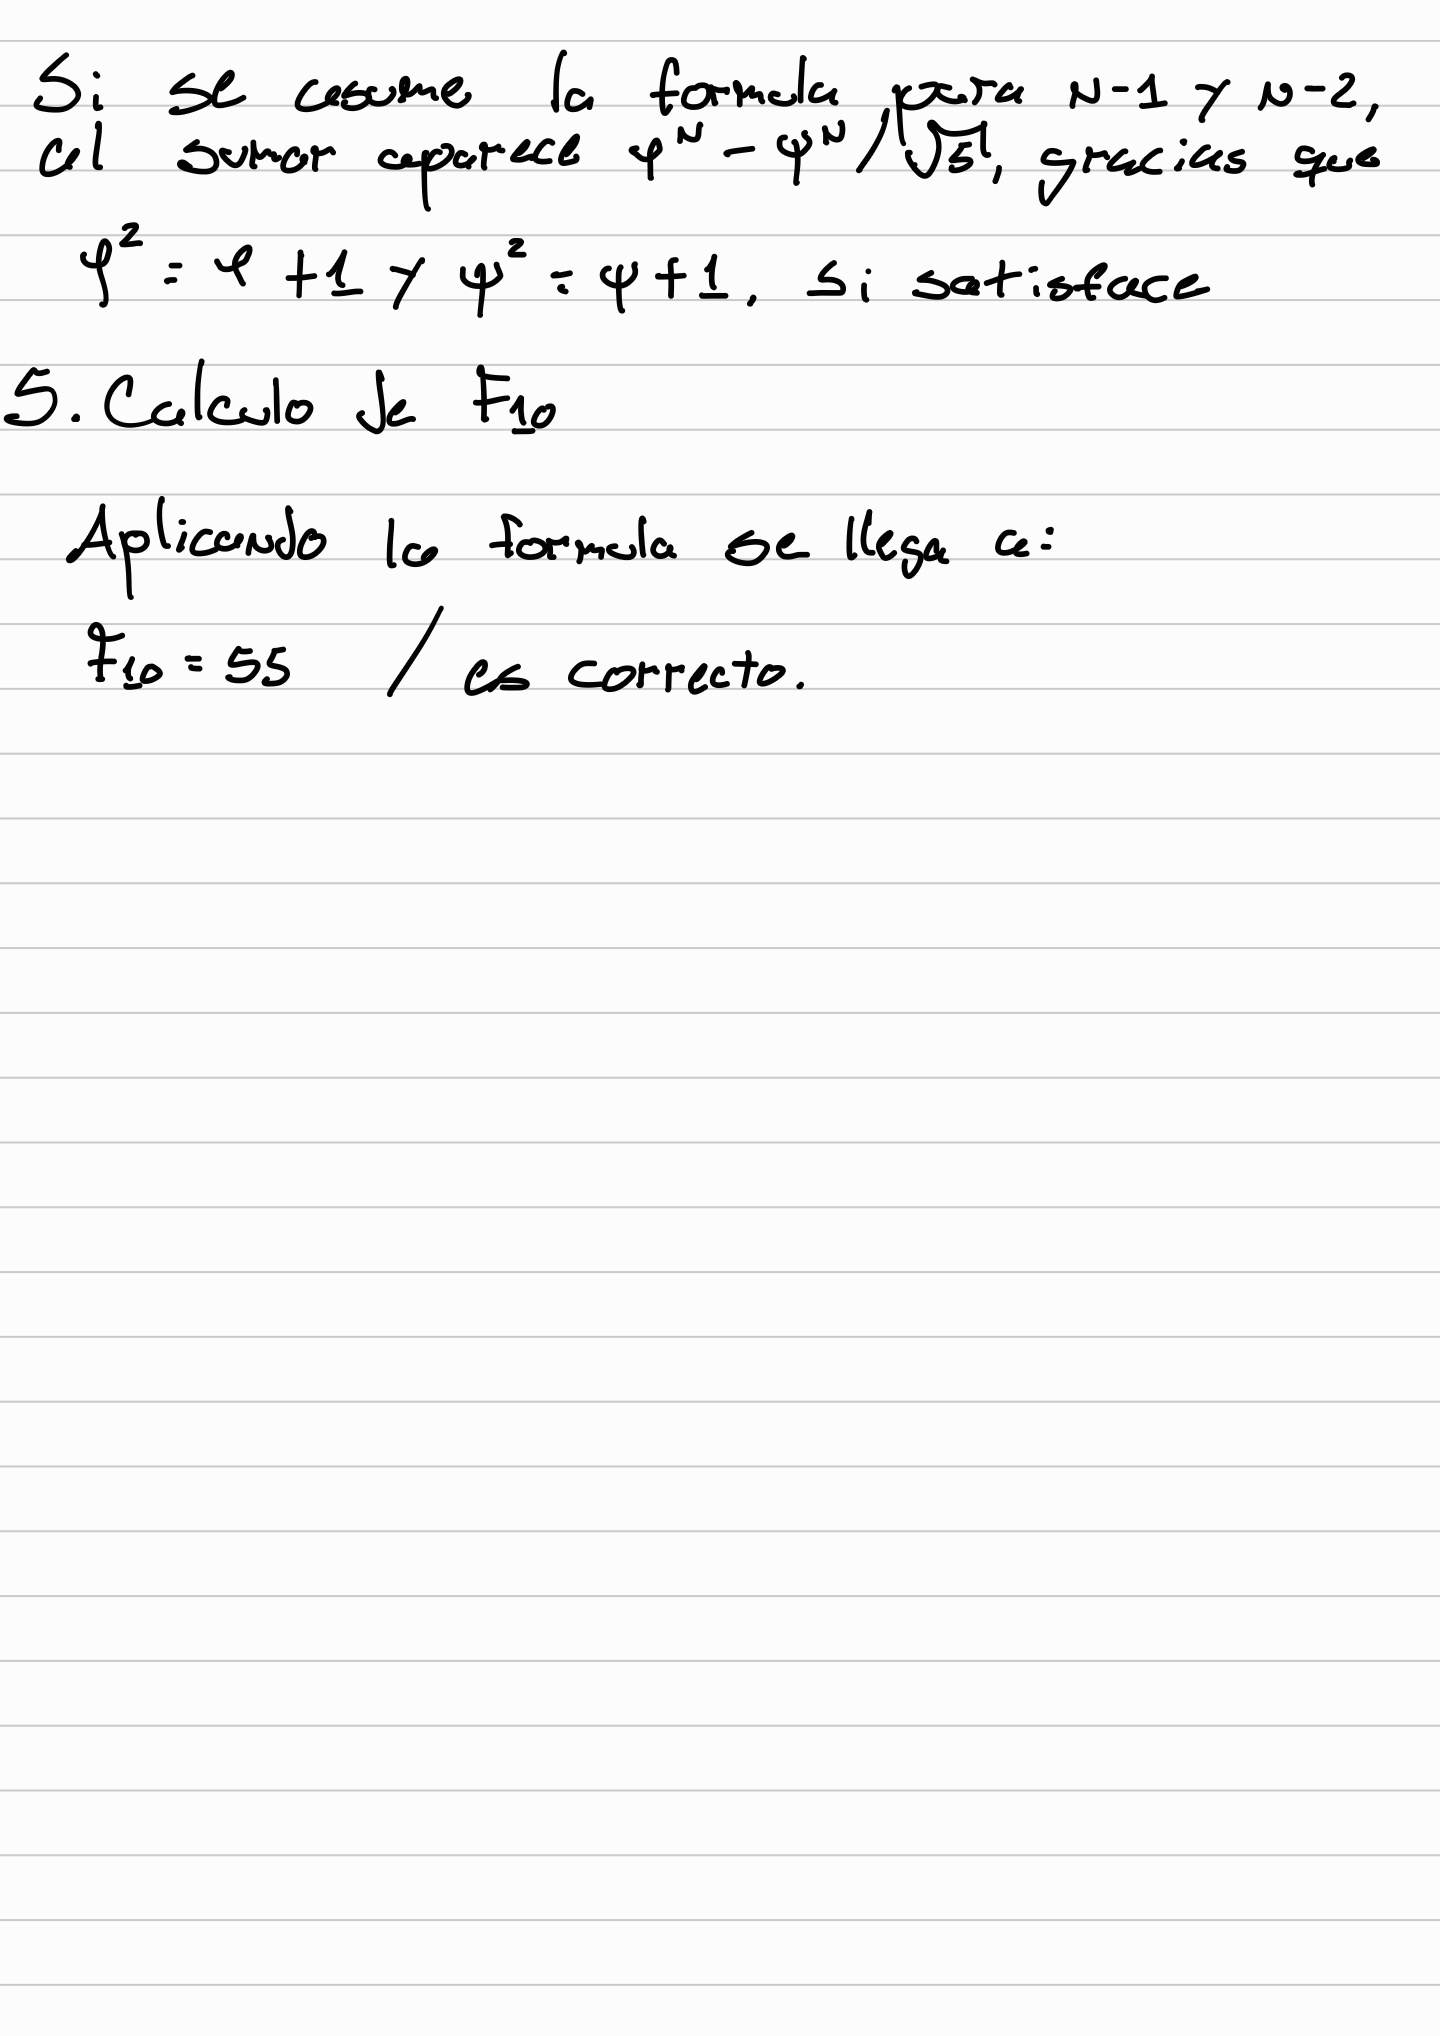 Si se asume la formula para N-1 y N-2,
al sumar aparece φᴺ - ψᴺ/√5, gracias que
φ² = φ + 1 y ψ² = ψ + 1, si satisface
5. Calculo de F₁₀
Aplicando la formula se llega a:
F₁₀ = 55 / es correcto.